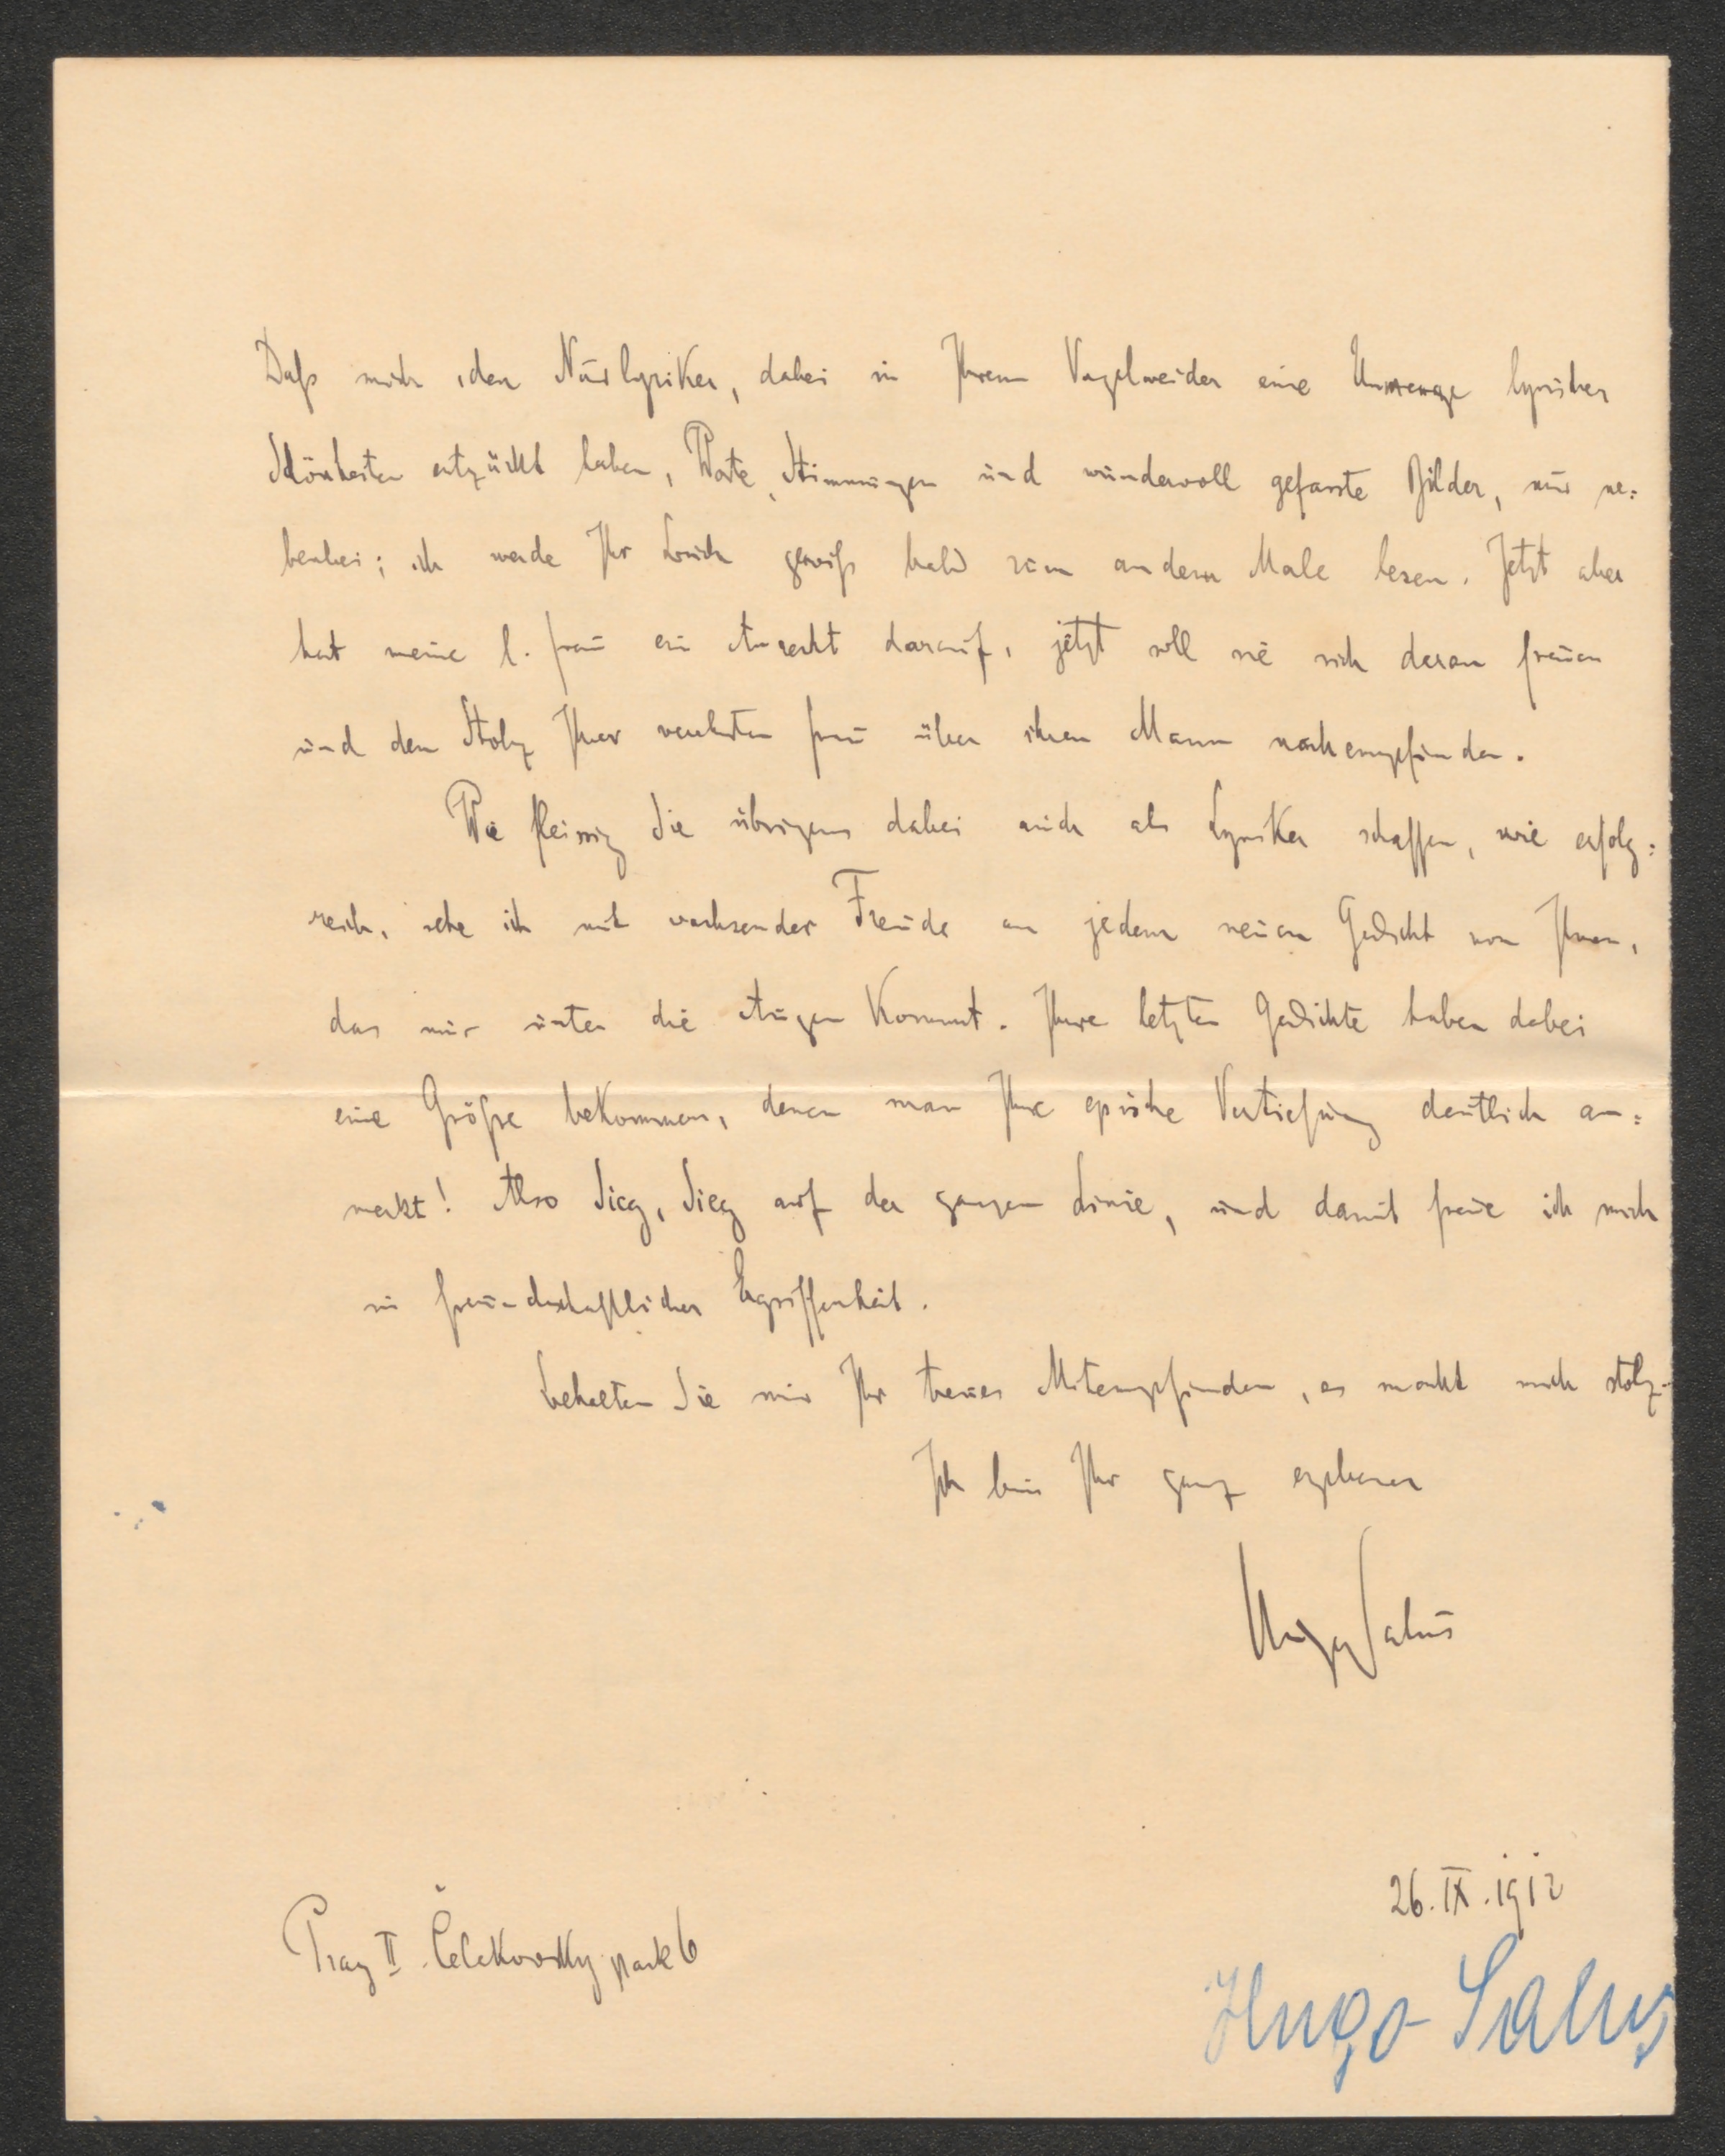 Daß mich, den Nurlyriker, dabei in Ihrem Vogelweider eine Unmenge lyrischer
Schönheiten entzückt haben, Worte, Stimmungen und wundervoll gefasste Bilder, nur ne=
benbei; ich werde Ihr Buch gewiß bald zum andern Male lesen. Jetzt aber
hat meine l. Frau ein Anrecht darauf, jetzt soll sie sich daran freuen
und den Stolz Ihrer verehrten Frau über ihren Mann nachempfinden.
Wie fleissig Sie übrigens dabei auch als Lyriker schaffen, wie erfolg=
reich, sehe ich mit wachsender Freude an jedem neuen Gedicht von Ihnen,
das mir unter die Augen kommt. Ihre letzten Gedichte haben dabei
eine Größe bekommen, denen man Ihre epische Vertiefung deutlich an=
merkt! Also Sieg, Sieg auf der ganzen Linie, und damit freue ich mich
in freundschaftlicher Ergriffenheit.
Behalten Sie mir Ihr treues Mitempfinden, es macht mich stolz.
Ich bin Ihr ganz ergebener
Hugo Salus
26. IX. 1912
Prag II Čelakovskypark 6
Hugo Salus